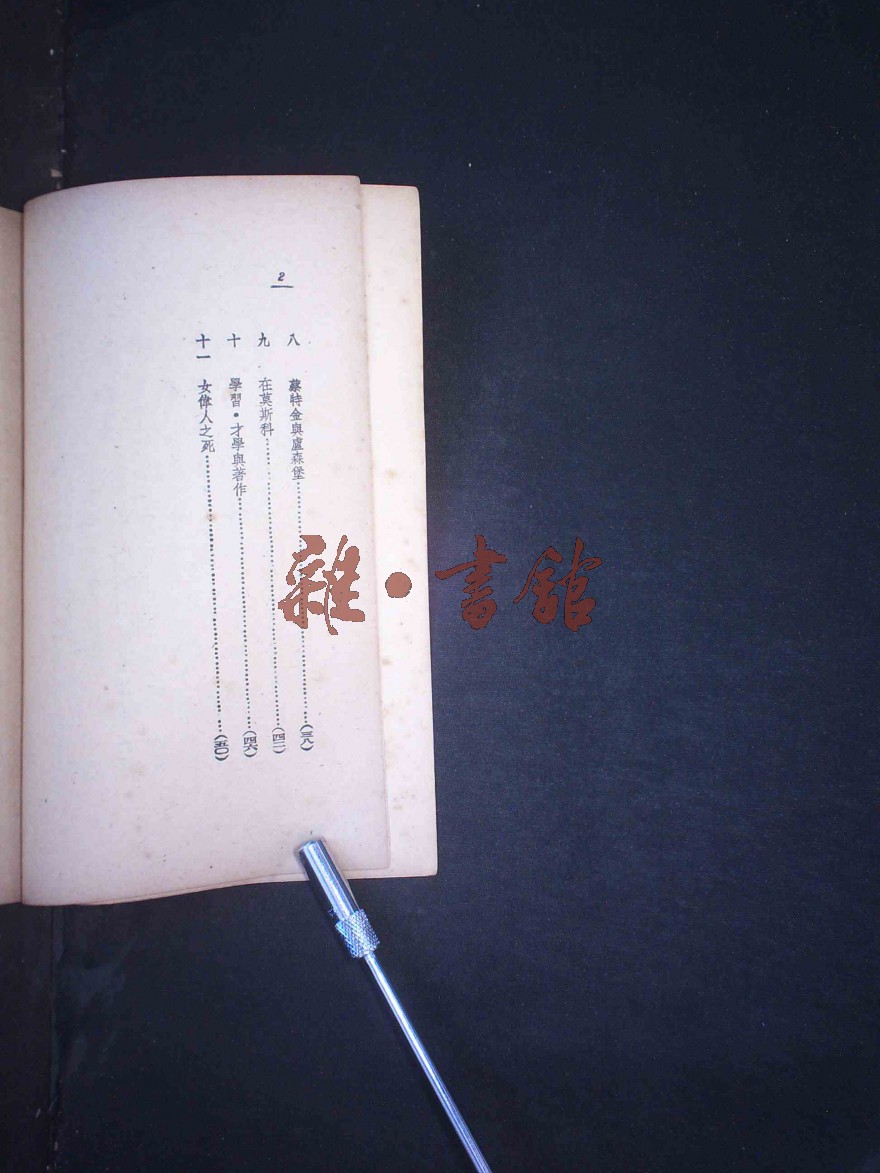 2
八 蔡特金與盧森堡……(三八)
九 在莫斯科……(四二)
十 學習·才學與著作……(四六)
十一 女偉人之死……(五〇)
雜·書館